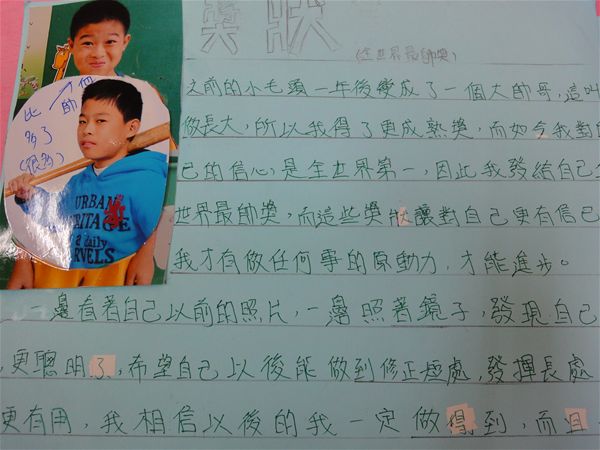 獎狀
(全世界最帥獎)
比
帥
多了
(很多)
URBAN
RITAGE
a daily
RVELS
之前的小毛頭一年後變成了一個大帥哥,這叫
做長大,所以我得了更成熟獎,而如今我對自
己的信心,是全世界第一,因此我發給自己全
世界最帥獎,而這些獎狀讓對自己更有信已
我才有做任何事的原動力,才能進步。
一邊看著自己以前的照片,一邊照著鏡子,發現自己
,更聰明了,希望自己以後能做到修正短處,發揮長處
更有用,我相信以後的我一定做得到,而且